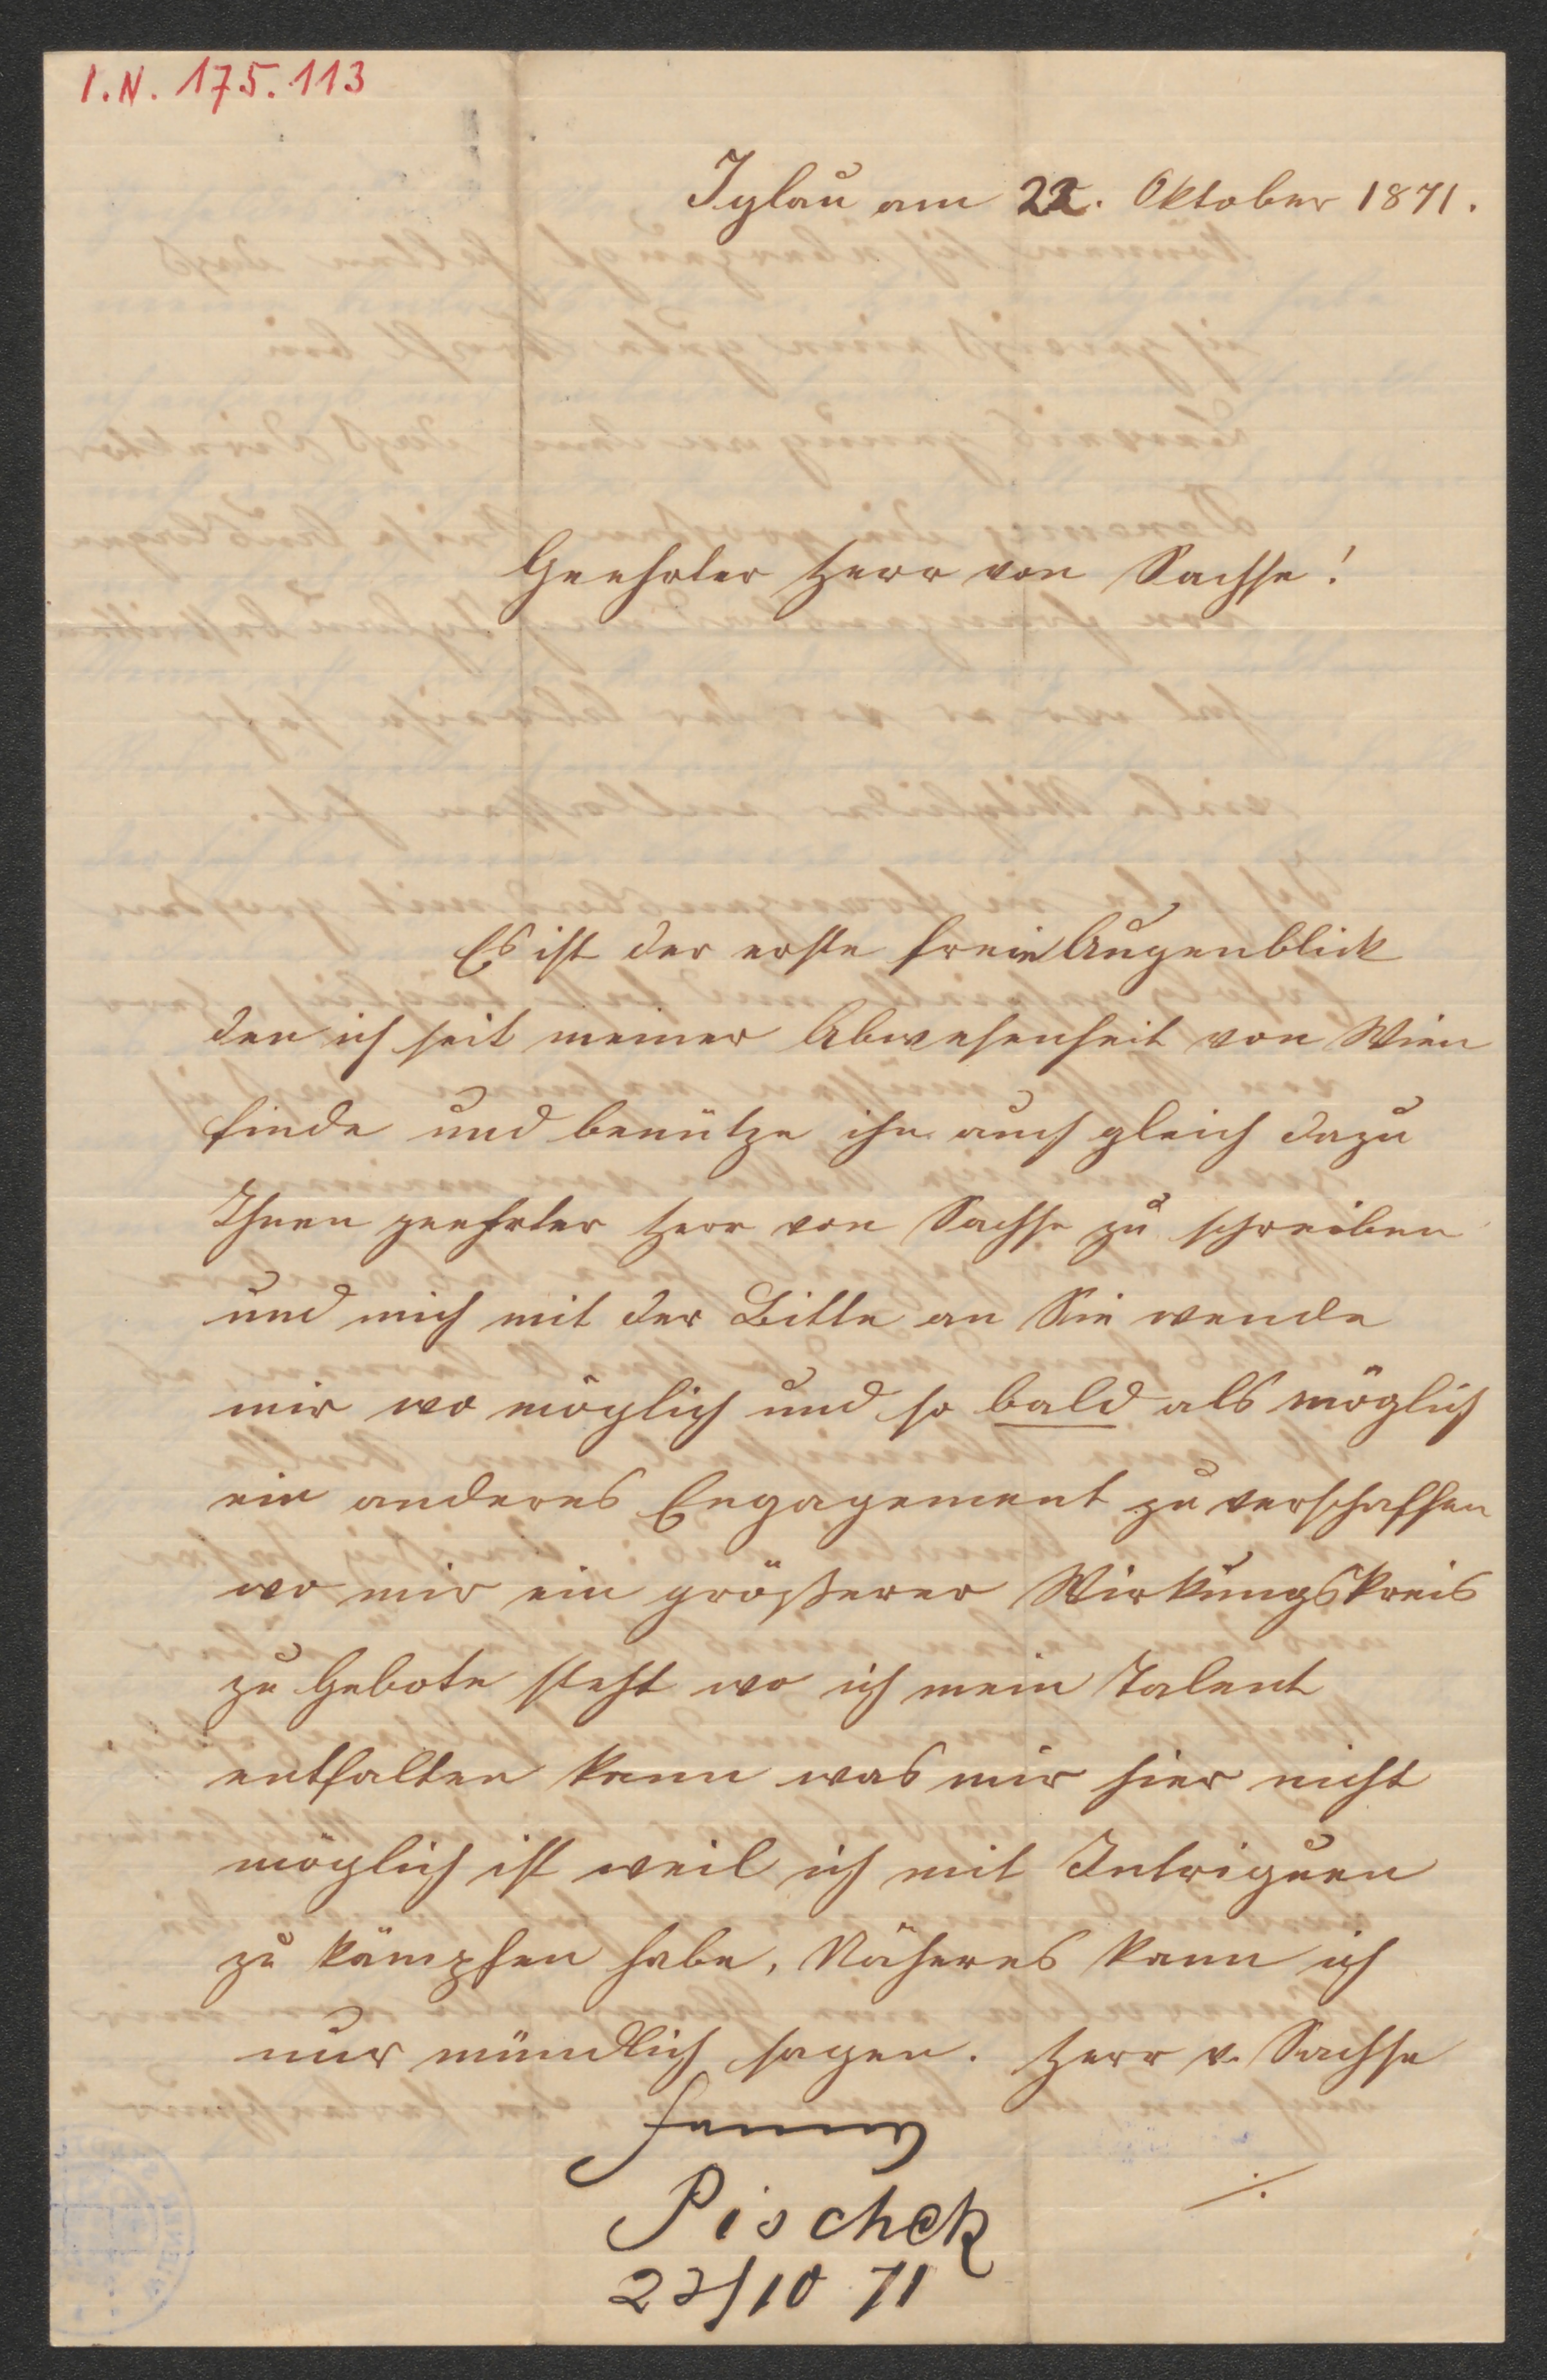 I.N. 175.113
Iglau am 22. Oktober 1871.
Geehrter Herr von Sachse!
Es ist der erste freie Augenblick
den ich seit meiner Abwesenheit von Wien
finde und benütze ihn auch gleich dazu
Ihnen geehrter Herr von Sachse zu schreiben
und mich mit der Bitte an Sie wende
mir wo möglich und so bald als möglich
ein anderes Engagement zu verschaffen
wo mir ein größerer Wirkungskreis
zu Gebote steht wo ich mein Talent
entfalten kann was mir hier nicht
möglich ist weil ich mit Intriguen
zu kämpfen habe, Näheres kann ich
nur mündlich sagen. Herr v. Sachse
Pischek
./.
22/10 71